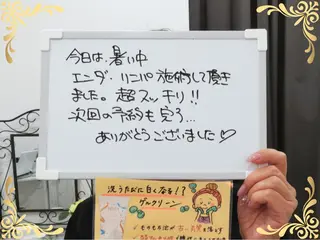 今日は、暑い中
エンダーリニパ施術して頂き
ました。超スッキリ!!
次回の予約も完了...
ありがとうございました♡
洗うたびに白くなる!?
ゲルクリーン